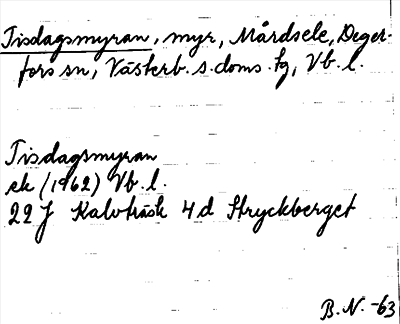 Tisdagsmyran, myr, Mårdsele, Deger-
fors sn, Västerb. s. doms. tg, Vb. l.
Tisdagsmyran
ek (1962) Vb. l.
22 J Kalvträsk 4 d Stryckberget
B. N. -63